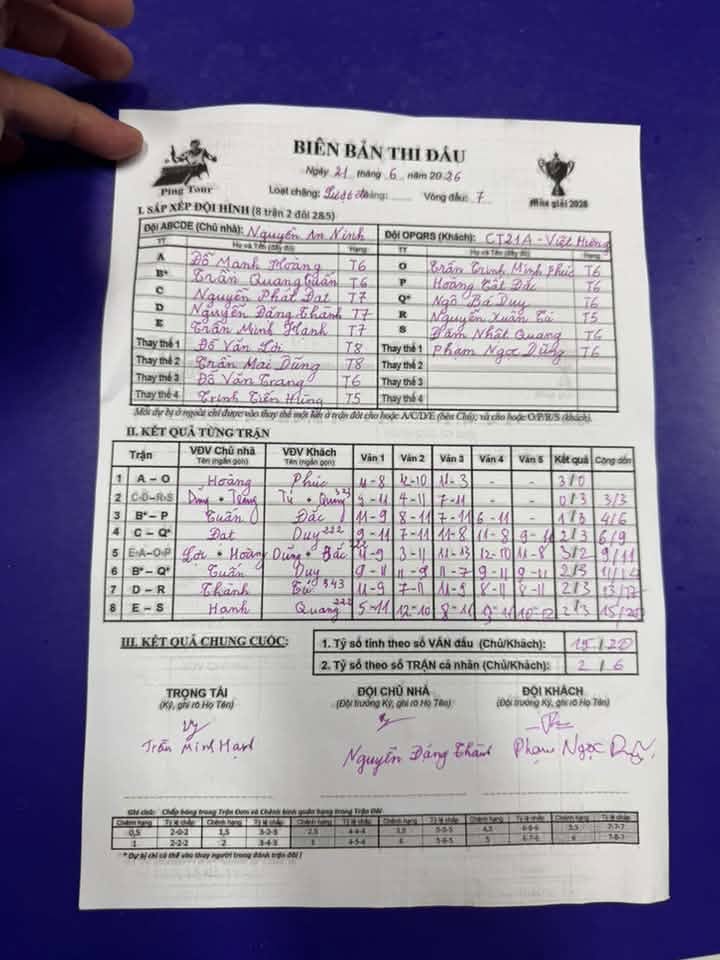 BIÊN BẢN THI ĐẤU
Ping Tour
Ngày 21 tháng 6 năm 2026
Loại chặng: tháng: Vòng đấu: 7
Mùa giải 2026
I. SẮP XẾP ĐỘI HÌNH (8 trận 2 đôi 2&5)
Đội ABCDE (Chủ nhà): Nguyễn An Ninh Đội OPQRS (Khách): CT21A - Việt Hưng
TT Họ và Tên (đầy đủ) Hạng TT Họ và Tên (đầy đủ) Hạng
A Đỗ Mạnh Hoàng T6 O Trần Trinh Minh Phúc T6
B* Trần Quang Tuấn T6 P Hoàng Tất Đắc T6
C Nguyễn Phát Đạt T7 Q* Ngô Bá Duy T6
D Nguyễn Đăng Thành T7 R Nguyễn Xuân Tú T5
E Trần Minh Hạnh T7 S Đàm Nhật Quang T6
Thay thế 1 Đỗ Văn Lợi T8 Thay thế 1 Phạm Ngọc Dũng T6
Thay thế 2 Trần Mai Dũng T8 Thay thế 2
Thay thế 3 Đỗ Văn Trang T6 Thay thế 3
Thay thế 4 Trịnh Tiến Hùng T5 Thay thế 4
Mỗi dự bị ở ngoài chỉ được vào thay thế một lần ở trận đơn cho hoặc A/C/D/E (bên Chủ); và cho hoặc O/P/R/S (khách).
II. KẾT QUẢ TỪNG TRẬN
Trận VĐV Chủ nhà Tên (ngắn gọn) VĐV Khách Tên (ngắn gọn) Ván 1 Ván 2 Ván 3 Ván 4 Ván 5 Kết quả Cộng dồn
1 A – O Hoàng Phúc 12-10 11-3 - - 3/0
2 C-D–R-S Tú + Quang 4-11 7-11 - - 0/3 3/3
3 B*– P Tuấn Đắc 11-9 8-11 7-11 6-11 - 1/3 4/6
4 C – Q* Đạt Duy 222 9-11 7-11 11-8 11-8 9-11 2/3 6/9
5 E-A–O-P Lợi + Hoàng Dũng + Đắc 11-9 3-11 11-13 12-10 11-8 3/2 9/11
6 B*– Q* Tuấn Duy 9-11 11-9 11-7 9-11 9-11 2/3 11/14
7 D – R Thành Tú 343 11-9 7-11 11-9 8-11 8-11 2/3 13/17
8 E – S Hạnh Quang 222 5-11 12-10 8-11 2/3 15/20
III. KẾT QUẢ CHUNG CUỘC:
1. Tỷ số tính theo số VÁN đấu (Chủ/Khách): 15/20
2. Tỷ số theo số TRẬN cá nhân (Chủ/Khách): 2/6
TRỌNG TÀI ĐỘI CHỦ NHÀ ĐỘI KHÁCH
(Ký, ghi rõ Họ Tên) (Đội trưởng Ký, ghi rõ Họ Tên) (Đội trưởng Ký, ghi rõ Họ Tên)
Trần Minh Hạnh Nguyễn Đăng Thành Phạm Ngọc Dũng
Ghi chú: Chấp bóng trong Trận Đơn và Chênh bình quân hạng trong Trận Đôi
Chênh hạng Tỷ lệ chấp Chênh hạng Tỷ lệ chấp Chênh hạng Tỷ lệ chấp Chênh hạng Tỷ lệ chấp Chênh hạng Tỷ lệ chấp Chênh hạng Tỷ lệ chấp
0,5 2-0-2 1,5 3-2-3 2,5 4-4-4 3,5 5-5-5 4,5 6-6-6 5,5 7-7-7
1 2-2-2 2 3-4-3 3 4-5-4 4 5-6-5 5 6-7-6 6 7-8-7
* Dự bị chỉ có thể vào thay người trong đánh trận đôi !